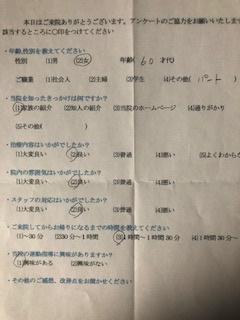 本日はご来院ありがとうございます。アンケートのご協力をお願いいたします
該当するところに〇印をつけてください
・年齢,性別を教えてください
性別 (1)男 (2)女 年齢( 60 才代
ご職業 (1)社会人 (2)主婦 (3)学生 (4)その他( パート
・当院を知ったきっかけは何ですか?
(1)家族の紹介 (2)知人の紹介 (3)当院のホームページ (4)通りがかり
(5)その他( )
・治療内容はいかがでしたか?
(1)大変良い (2)良い (3)普通 (4)悪い (5)よくわから
・院内の雰囲気はいかがでしたか?
(1)大変良い (2)良い (3)普通 (4)悪い
・スタッフの対応はいかがでしたか?
(1)大変良い (2)良い (3)普通 (4)悪い
・ご来院してからお帰りになるまでの時間を教えてください
(1)～30分 (2)30分～1時間 (3)1時間～1時間30分 (4)1時間30分～
・当院の運動指導に興味がありますか?
(1)興味がある (2)興味がない
・その他のご感想、改善点をお聞かせください